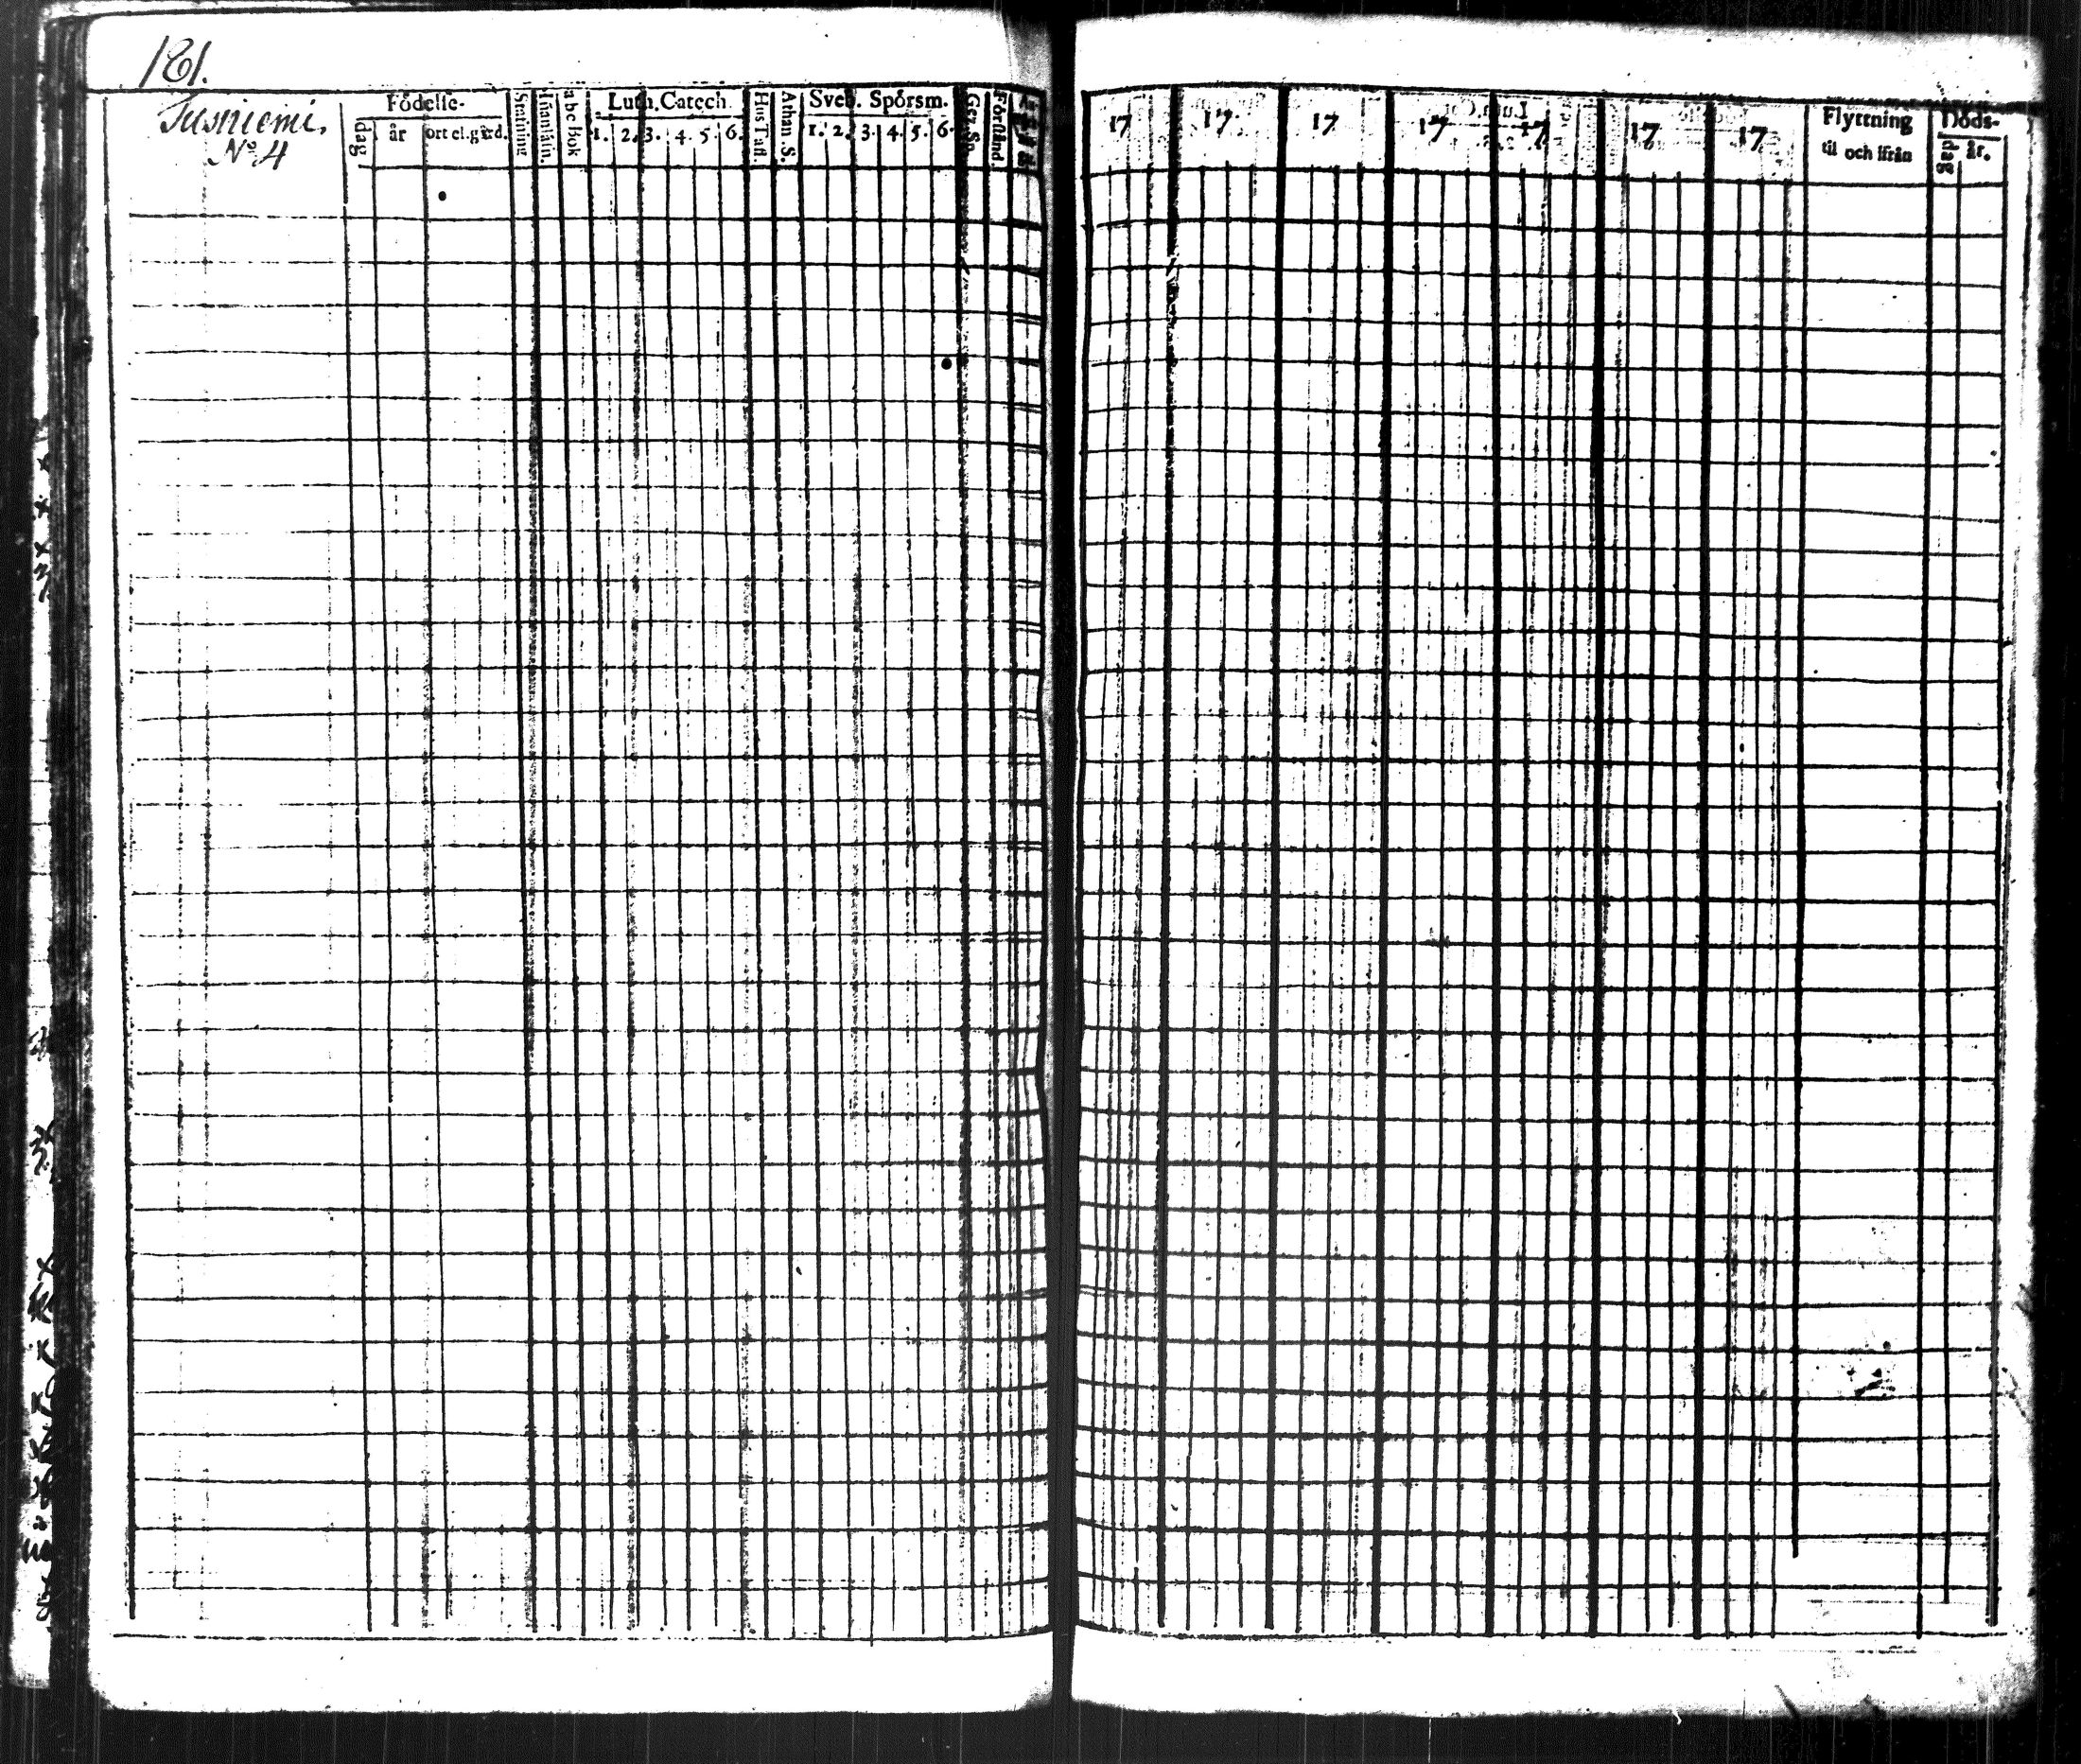 181.
Tusniemi.
No 4
Födelse-
dag år ort el. gård.
Stafning
Innanläsn.
abc Bok
Luth. Catech.
1. 2. 3. 4. 5. 6.
Hus Tafl.
Athan. S.
Sveb. Spörsm.
1. 2. 3. 4. 5. 6.
Förstånd.
17 17 17 17 17 17 17
Flyttning
til och ifrån
Döds-
dag år.